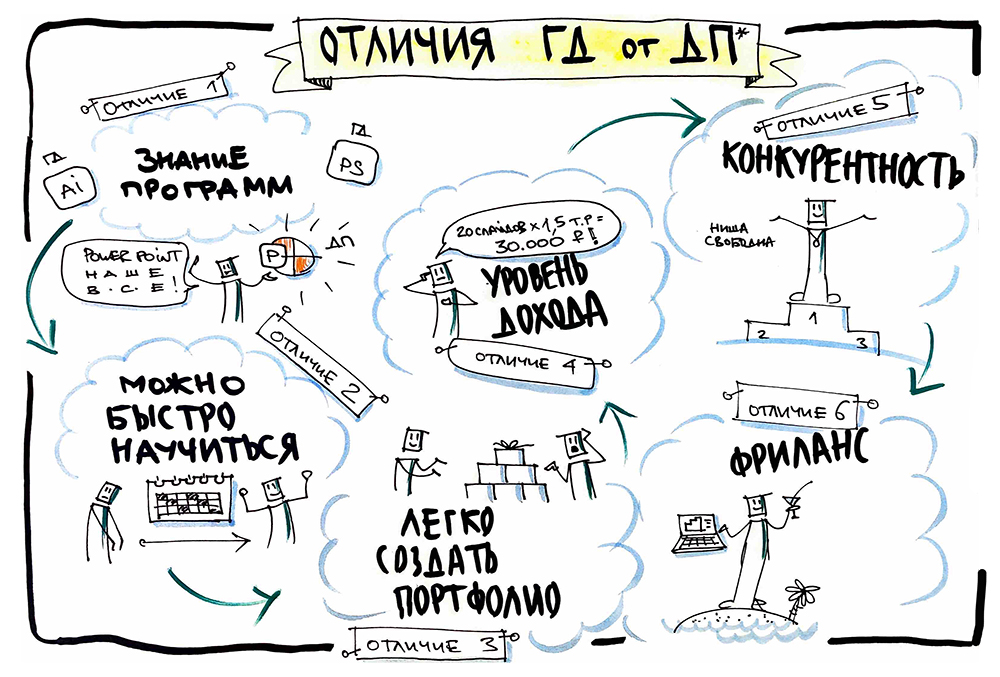 ОТЛИЧИЯ ГД от ДП*
ОТЛИЧИЕ 1
ЗНАНИЕ
ПРОГРАММ
ГД
Ai
ГД
PS
POWER POINT
НАШЕ
В.С.Е!
P
ДП
ОТЛИЧИЕ 2
МОЖНО
БЫСТРО
НАУЧИТЬСЯ
ЛЕГКО
СОЗДАТЬ
ПОРТФОЛИО
ОТЛИЧИЕ 3
20 СЛАЙДОВ х 1,5 Т.Р =
30.000 ₽!
УРОВЕНЬ
ДОХОДА
ОТЛИЧИЕ 4
ОТЛИЧИЕ 5
КОНКУРЕНТНОСТЬ
НИША
СВОБОДНА
1
2
3
ОТЛИЧИЕ 6
ФРИЛАНС